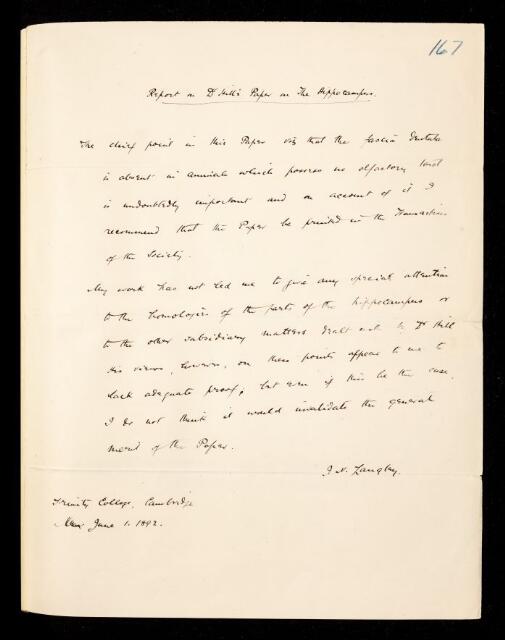 167
Report on Dr Hill's Paper on The Hippocampus.
The chief point in this Paper viz that the fascia dentata
is absent in animals which possess no olfactory tract
is undoubtedly important and on account of it I
recommend that the Paper be printed in the Transactions
of the Society.
My work has not led me to give any special attention
to the homologies of the parts of the hippocampus or
to the other subsidiary matters dealt with by Dr Hill
His views, however, on these points appear to me to
lack adequate proof; but even if this be the case,
I do not think it would invalidate the general
merit of the Paper.
J. N. Langley.
Trinity College, Cambridge
June 1. 1892.